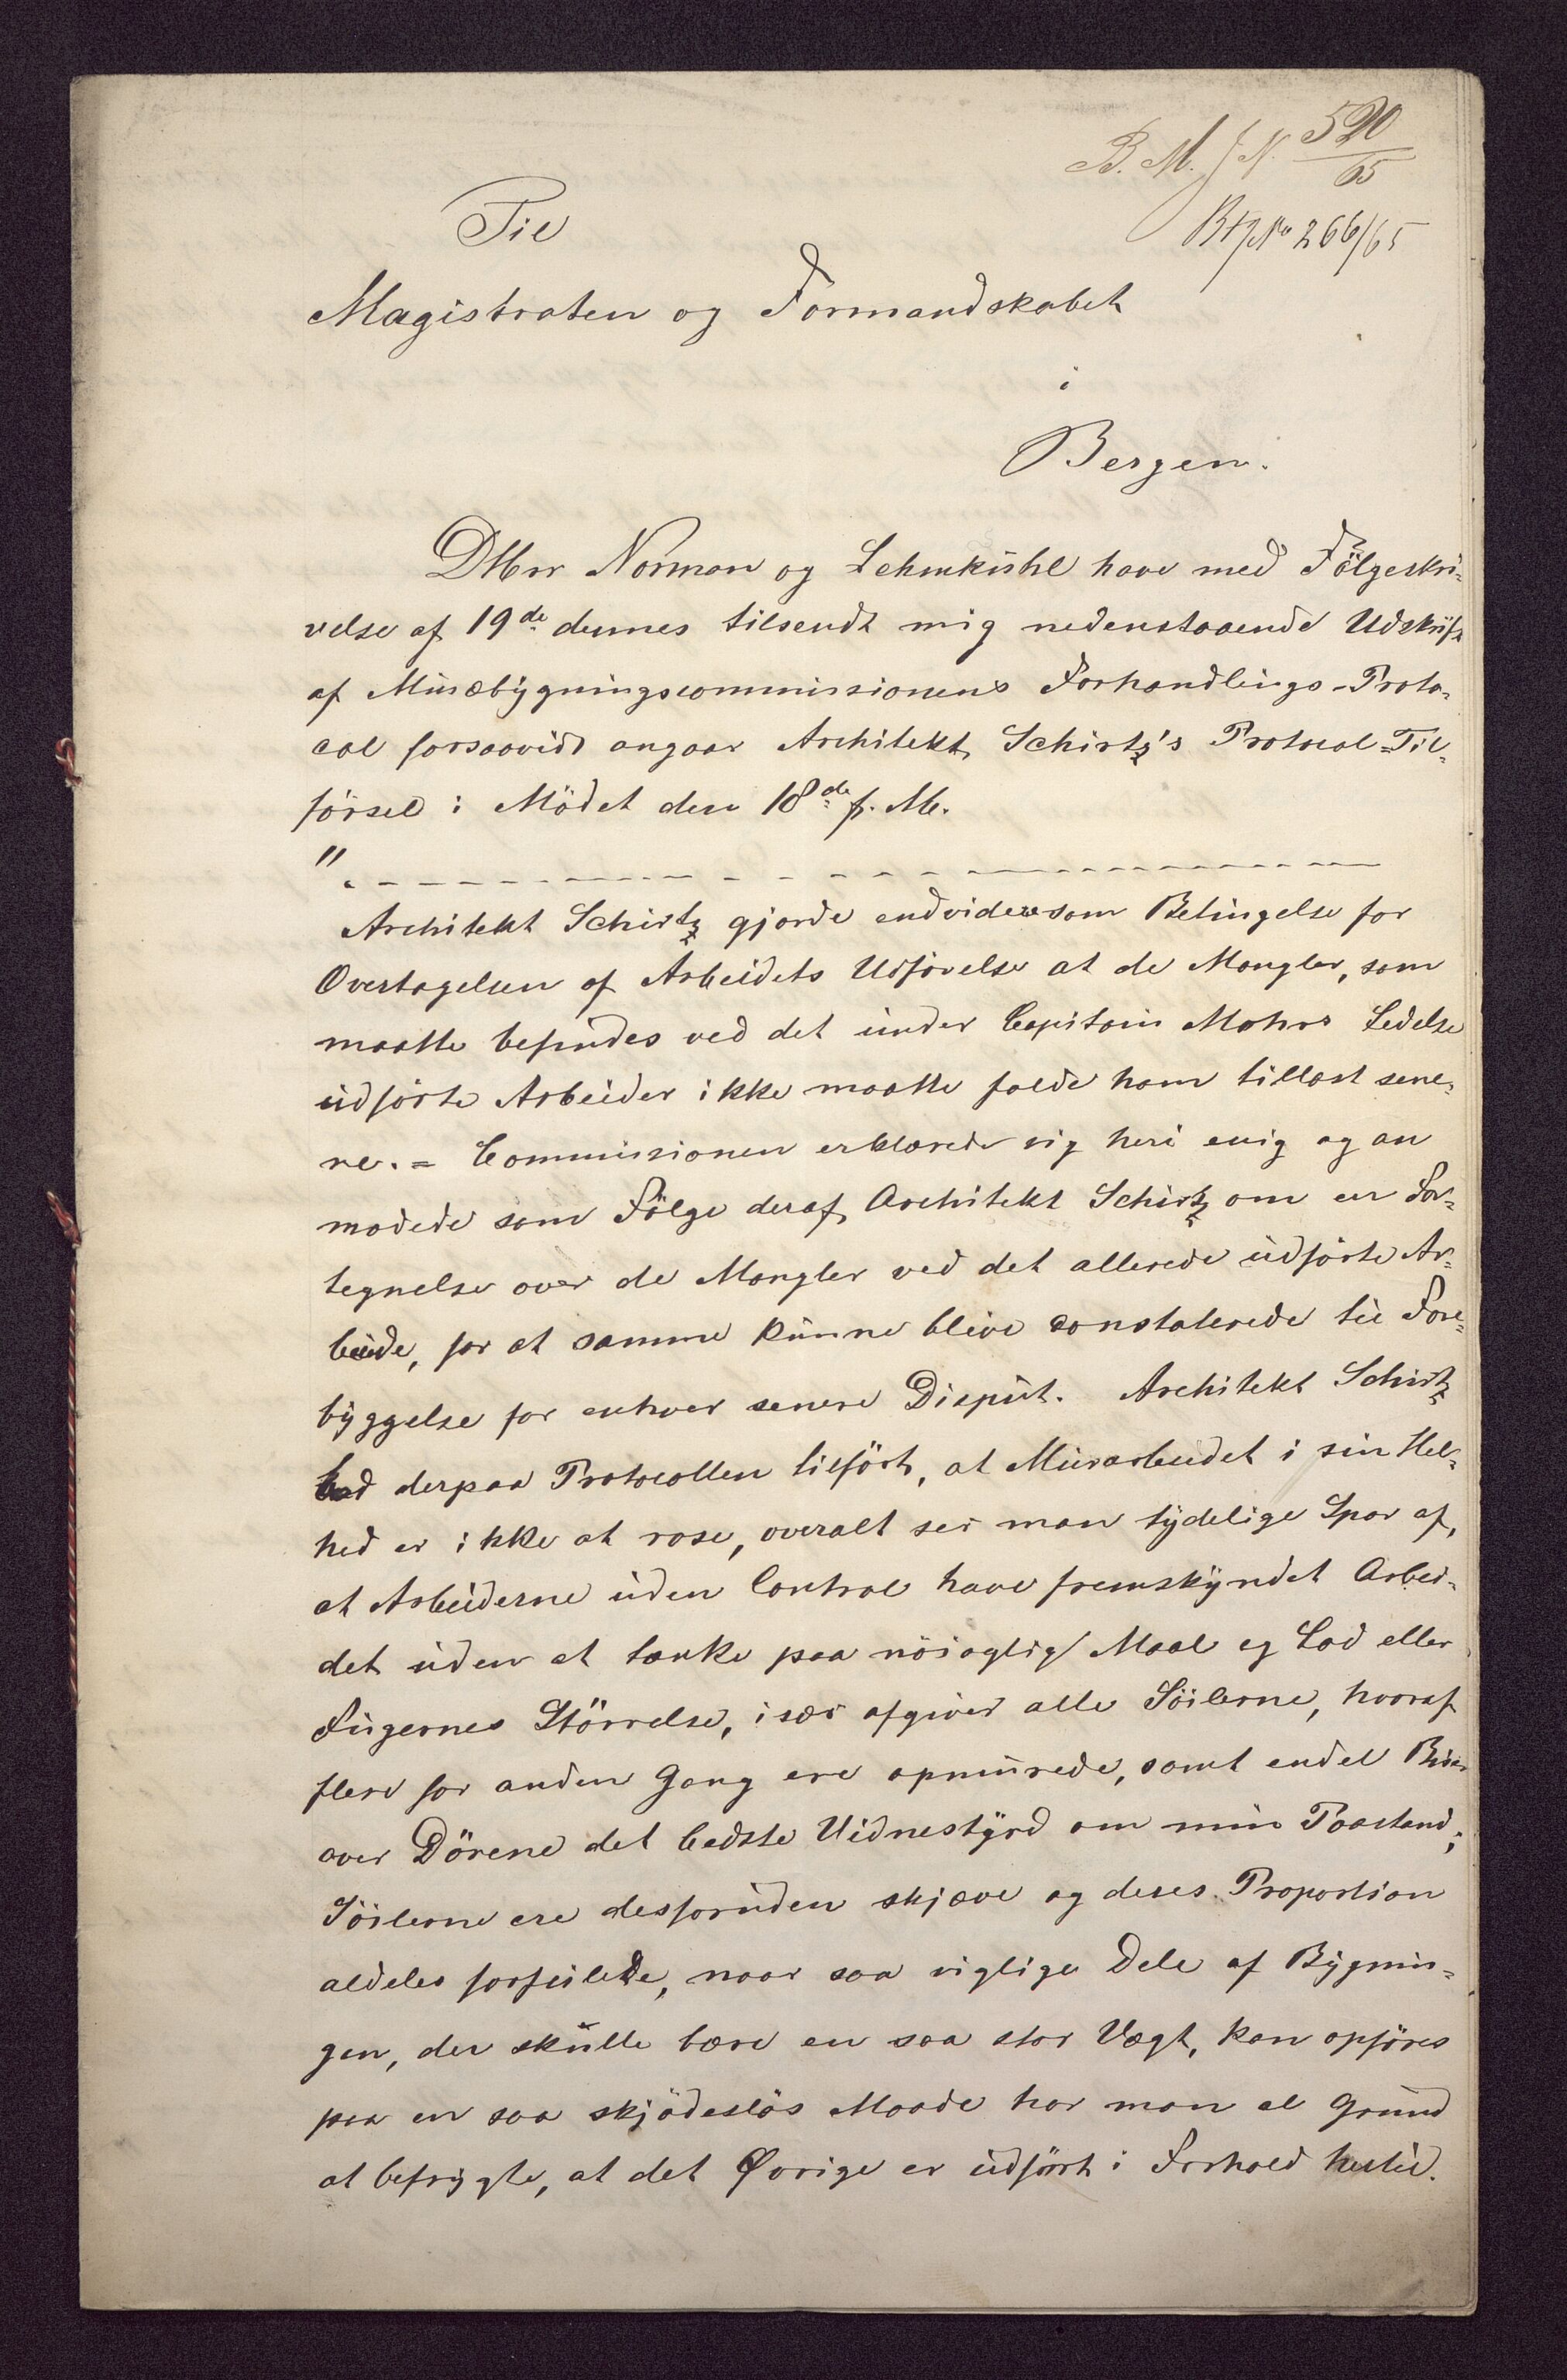 B. M. J. N. 520/65
Til
Btf No 266/65
Magistraten og Formandskabet
i
Bergen.
DHrr Norman og Lehmkuhl have med Fölgeskri-
velse af 19de dennes tilsendt mig nedenstaaende Udskrift
af Musæbygningscommissionens Forhandlings-Proto-
col forsaavidt angaar Architekt Schirtz's Protocol-Til-
försel i Mödet den 18de f. M.
" - - - - - - - - - - - - - - -
Architekt Schirtz gjorde endvidere som Betingelse for
Overtagelsen af Arbeidets Udförelse at de Mangler, som
maatte befindes ved det under Capitain Mohrs Ledelse
udförte Arbeider ikke maatte falde ham tillast sene-
re. - Commissionen erklærede sig heri enig og an
modede som Fölge deraf Architekt Schirtz om en For-
tegnelse over de Mangler ved det allerede udförte Ar-
beide, for at samme kunne blive constaterede til Fore-
byggelse for enhver senere Disput. Architekt Schirtz
bad derpaa Protocollen tilfört, at Murarbeidet i sin Hel-
hed er ikke at rose, overalt ser man tydelige Spor af,
at Arbeiderne uden Control have fremskyndet Arbei-
det uden at tænke paa nöiagtig Maal og Lod eller
Fugernes Störrelse, især afgiver alle Söilerne, hvoraf
flere for anden Gang ere opmurede, samt endel Buer
over Dörene det bedste Vidnesbyrd om min Paastand;
Söilerne ere desforuden skjæve og deres Proportion
aldeles forfeilede, naar saa vigtige Dele af Bygnin-
gen, der skulle bære en saa stor Vægt, kan opföres
paa en saa skjödeslös Maade har man al Grund
at befrygte, at det Øvrige er udfört i Forhold hertil.